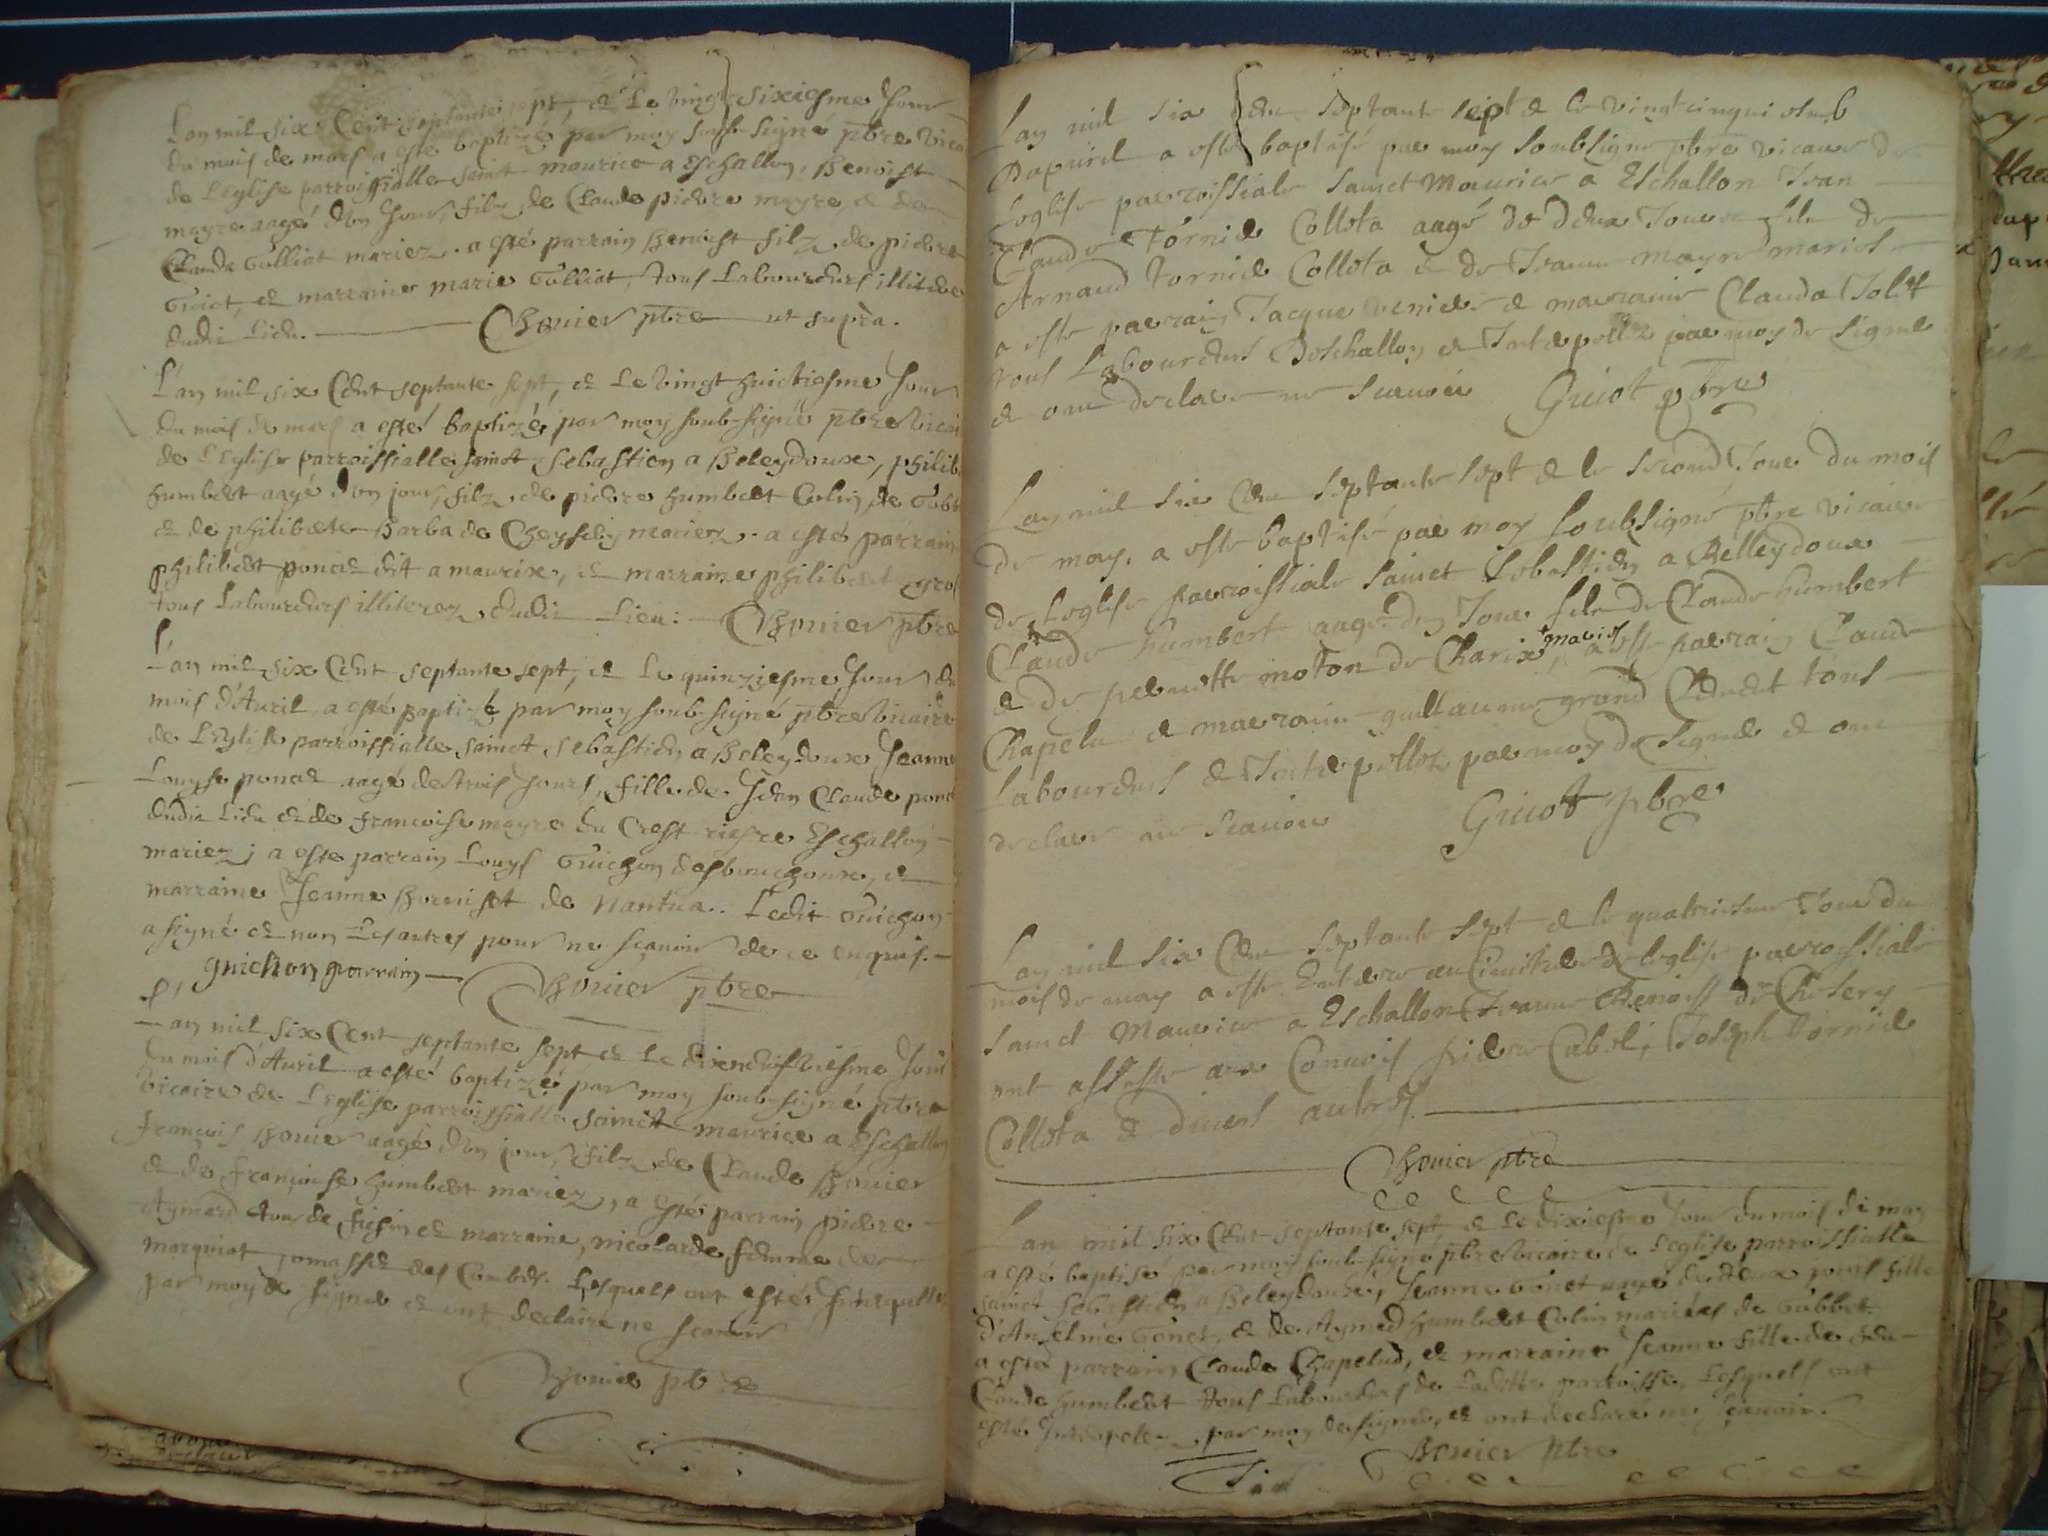 L'an mil six Cent septante sept, et Le vingt sixiesme Jour
du mois de mars a esté baptizé par moy soub-signé pbre vica
de L'eglise parroissialle sainct maurice a Eschallon, Benoist
mayre aagé d'un Jour, filz de Claude pierre mayre, et de
Clauda Gulliot mariez. a esté parrain Benoist filz de pierre
Guiot, et marraine marie Gulliot, tous Laboureurs illiteres
dudit Lieu. Bonier pbre ut supra.
L'an mil six Cent septante sept, et Le vingt huictiesme Jour
du mois de mars a esté baptizé par moy soub-signé pbre vicai
de L'Eglise parroissialle sainct sebastien a Beleydoux, philib
humbert aagé d'un jour, filz de pierre humbert Colin de Gobb
et de philiberte Barba de mariez. a esté parrain
philibert poncet dit a maurix, et marraine philiberte gros
tous Laboureurs illiterez dudit Lieu: Bonier pbre
L'an mil six Cent septante sept, et Le quinziesme Jour du
mois d'Auril a esté baptizé par moy soub-signé pbre vicaire
de L'Eglise parroissialle sainct sebastien a Beleydoux Jeanne
Louyse poncet aagé de trois Jours, fille de Jean Claude ponc
dudit Lieu et de francoise mayre du Crest riesre Eschallon
mariez; a esté parrain Louys Guichon desbouchoux, et
marraine Jeanne de Nantua. Ledit Guichon
a signé et non Les autres pour ne scauoir de ce enquis.
guichon parrain Bonier pbre
L'an mil six Cent septante sept et Le dixneufviesme Jour
du mois d'Auril a esté baptizé par moy soub-signé pbre
vicaire de L'Eglise parroissialle sainct maurice a Eschallon
françois Bonier aagé d'un jour, filz de Claude Bonier
et de françoise humbert mariez, a esté parrain pierre
Aymard tour de et marraine, nicolarde femme de
marquiot des Combes. Lesquels ont estés Interpellez
par moy de signer et ont declairé ne scauoir
Bonier pbre
L'an mil six Cent septante sept et le vingtcinquiesme
Dapuril a esté baptisé par moy soubsigné pbre vicaire de
Leglise parroissiale sainct Maurice a Eschallon Jean
Claude Tornier Colleta aagé de deux Jours filz de
Arnaud tornier Colleta et de Jeanne mayre mariés
a esté parrain Jacque et marraine Clauda Jolit
tous Laboureurs Deschallon et Interpellez par moy de signer
et ont declaré ne scauoir Guiot pbre
L'an mil six Cent septante sept et le second Jour du mois
de may, a esté baptisé par moy soubsigné pbre vicaire
de Leglise parroissiale sainct Sebastien a Belleydoux
Claude humbert aagé d'un Jour filz de Claude humbert
et de pernette moton de Charix mariés, a esté parrain Claude
Chapelu et marraine guillauma grand Clement tous
Laboureurs et Interpellez par moy de signer et ont
declaré ne scauoir Guiot pbre
L'an mil six Cent septante sept et le quatriesme Jour du
mois de may a esté Enterré au Cimitiere de leglise parroissiale
sainct Maurice a Eschallon Jeanne Benoist de Chesery
ont assisté au Conuoy pierre Cabol, Joseph Tornier
Colleta et diuers autres
Bonier pbre
L'an mil six Cent septante sept et Le dixiesme Jour du mois de may
a esté baptisé par moy soub-signé pbre vicaire de L'eglise parroissialle
sainct sebastien a Beleydoux, Jeanne Gonet aagé de deux jours fille
d'Anselme Gonet, et de Aymed humbert Colin mariés de Gobbet
a esté parrain Claude Chapelud, et marraine Jeanne fille de feu
Claude humbert tous Laboureurs de Laditte parroisse, Lesquels ont
esté Interpelez par moy de signer, et ont declaré ne scauoir.
Bonier pbre